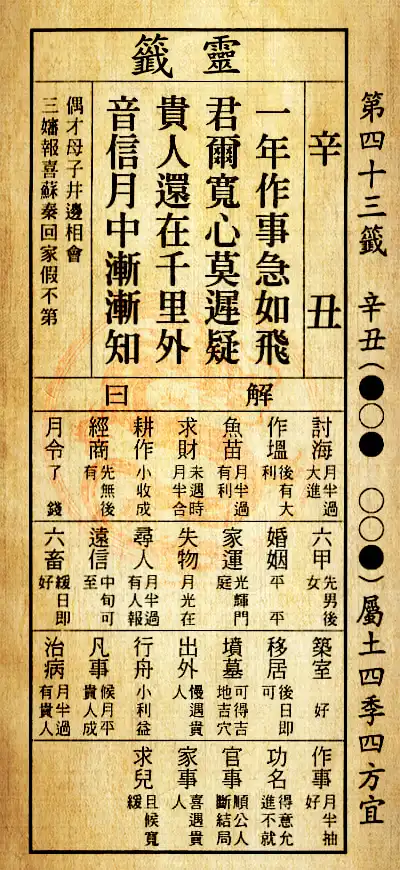 第四十三籤 辛丑(●○● ○○●)屬土四季四方宜
靈籤
辛丑
一年作事急如飛
君爾寬心莫遲疑
貴人還在千里外
音信月中漸漸知
偶才母子井邊相會
三嬸報喜蘇秦回家假不第
解曰
討海 月半過大進
作塭 後有大利
魚苗 月半過有利
求財 未遇時月半合
耕作 小收成
經商 先無後有
月令 了錢
六甲 先男後女
婚姻 平平
家運 光輝門庭
失物 月光在
尋人 月半過有人報
遠信 中旬可至
六畜 緩日即好
築室 好
移居 後日即可
墳墓 可得吉地吉穴
出外 慢遇貴人
行舟 小利益
凡事 候月平貴人成
治病 月半過有貴人
作事 月半抽好
功名 得意允進不就
官事 順公人斷結局
家事 喜遇貴人
求兒 且候寬緩